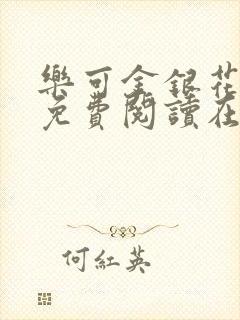 樂可金銀花
免費閱讀在
何紅英